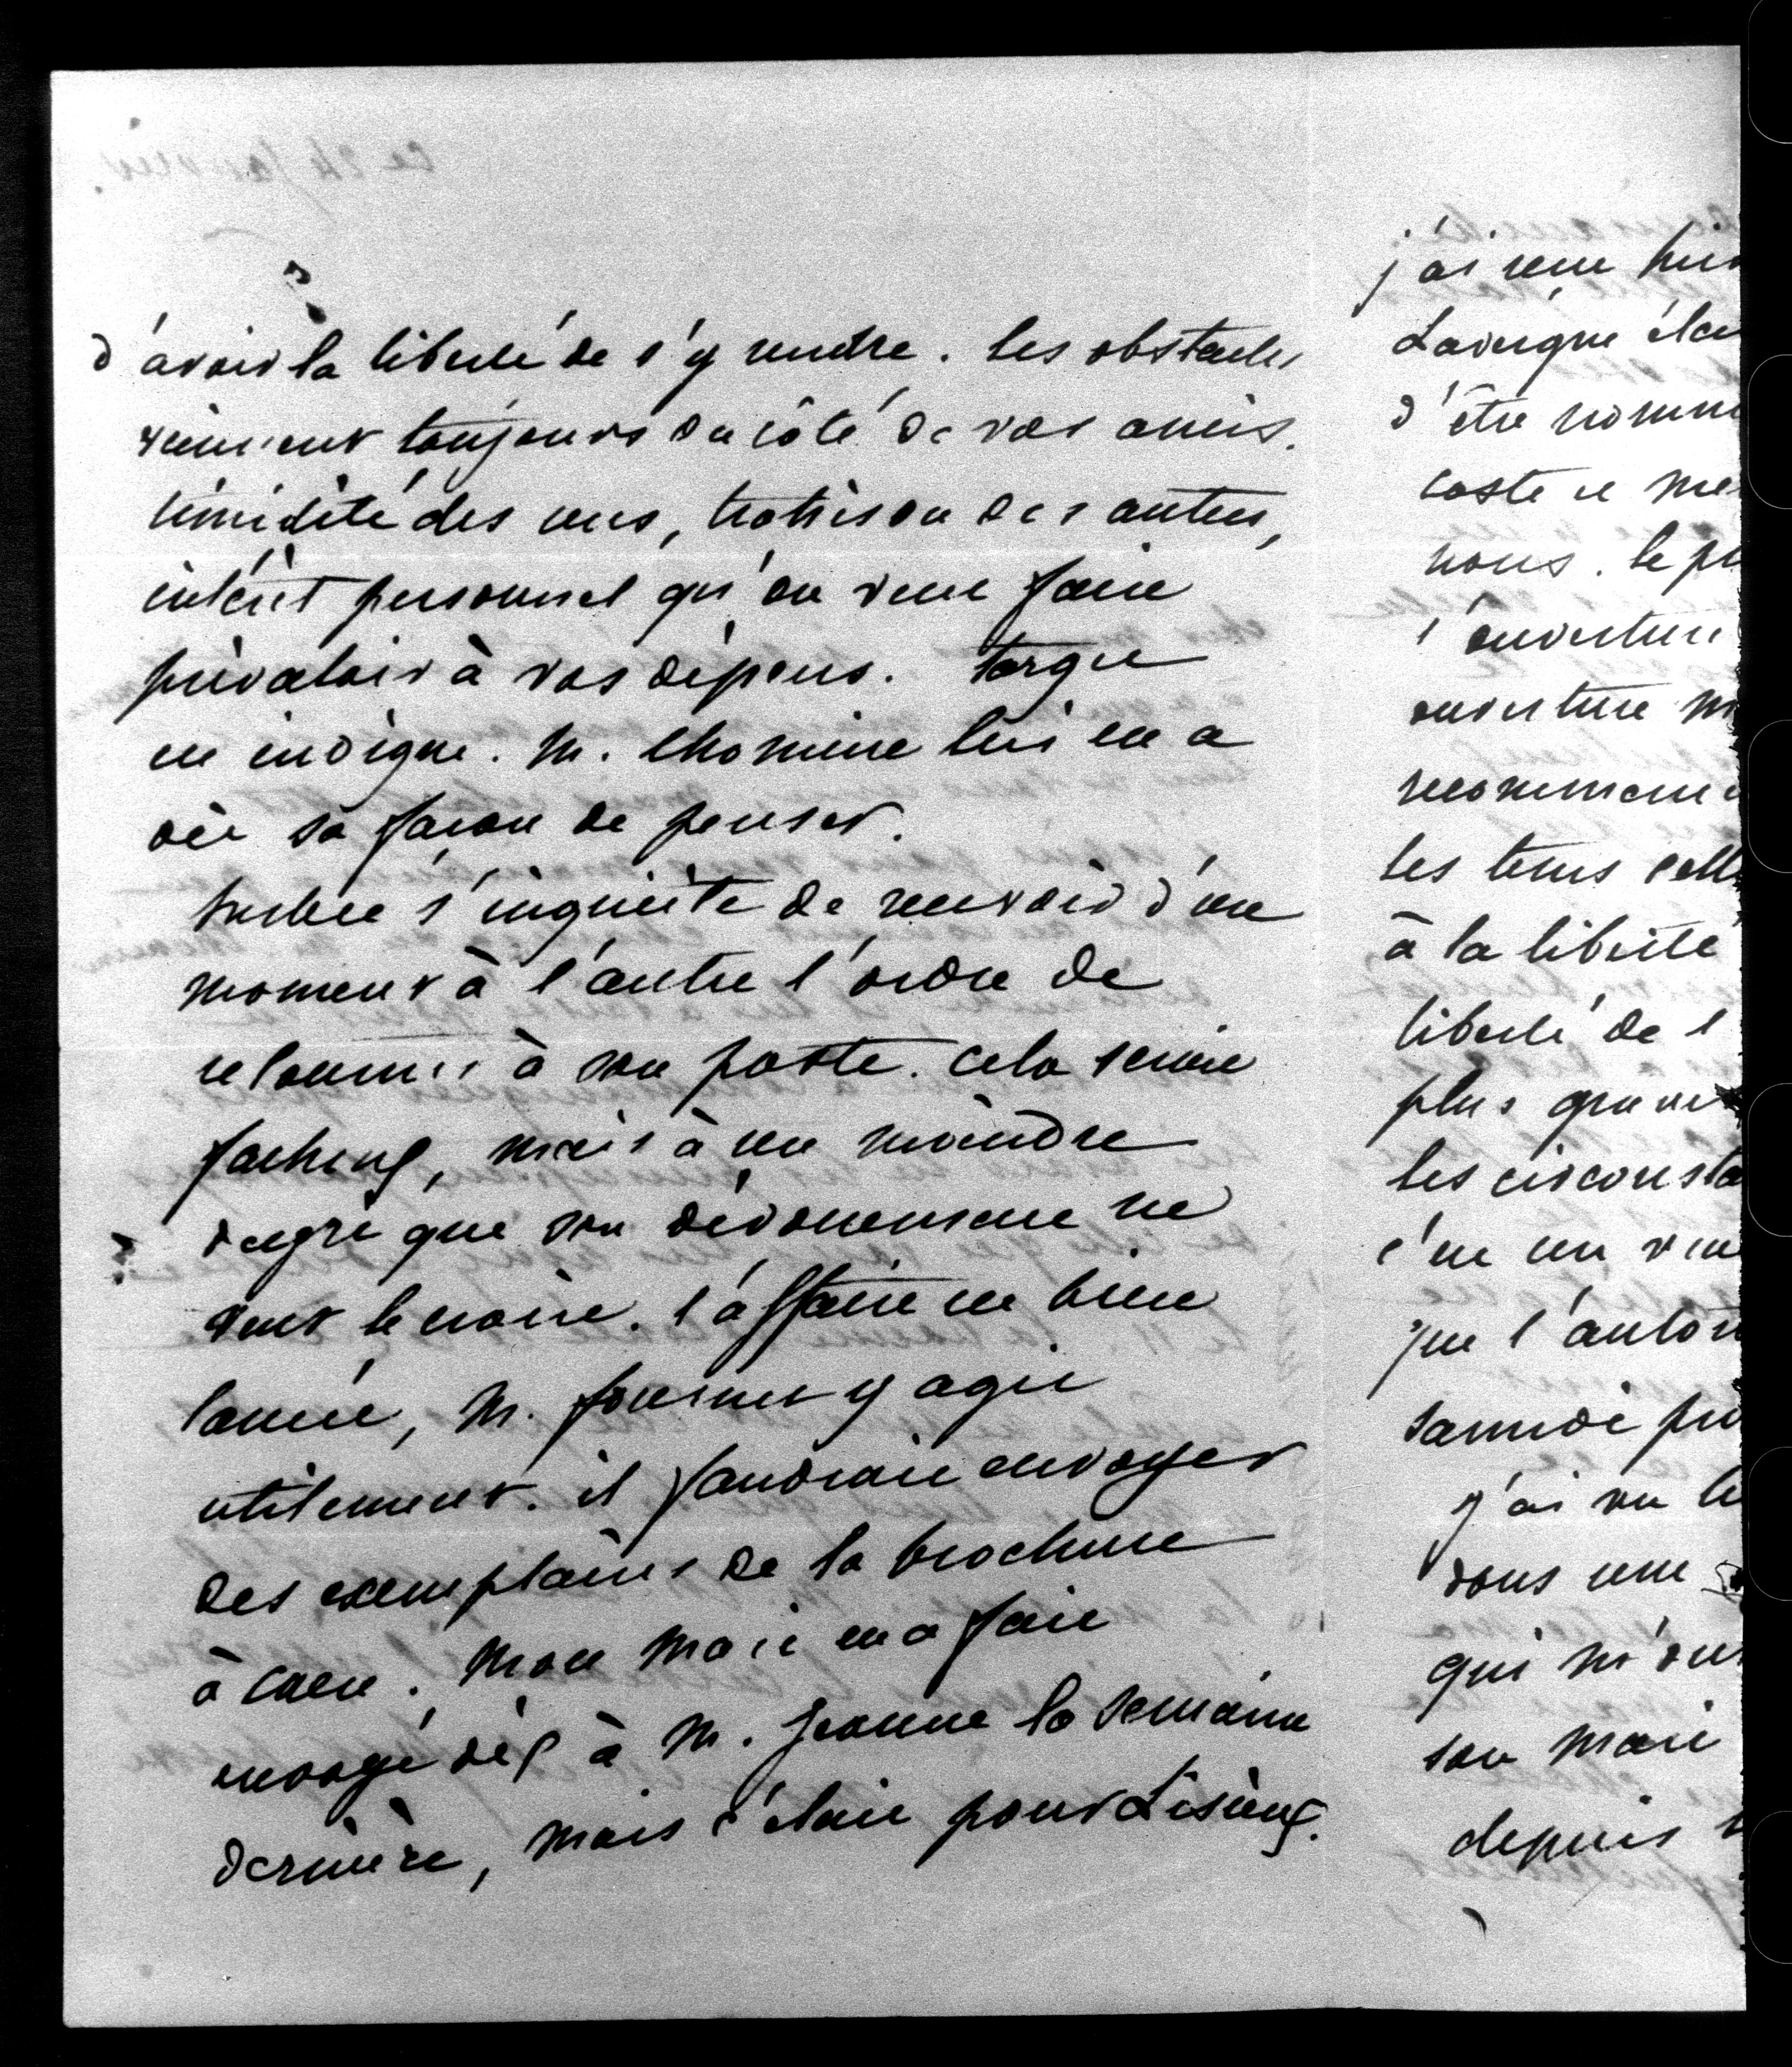 d'avoir la liberté de s'y rendre. les obstacles
viennent toujours du côté de vos amis.
timidité des uns, trahison des autres,
intérêt personnel qu'on veut faire
prévaloir à vos dépens. Target
est indigne. M. lhomme lui en a
dit sa façon de penser.
s'inquiète de recevoir d'un
moment à l'autre l'ordre de
retourner à son poste. cela serait
facheux, mais à un moindre
degré que son dévouement ne
veut le croire. l'affaire est bien
lancée, M. fournet y agit
utilement. il faudrait envoyer
des exemplaires de la brochure
à Caen. Mon mari en a fait
envoyé dix à M. Jeanne la semaine
dernière, mais c'était pour Lisieux.
j'ai reçu
Lavergne
d'être nommé
coste
nous. le
l'ouverture
ouverture
les tems
à la liberté
liberté de l
plus grave
les circonsta
c'est un
que l'autori
samedi
j'ai vu le
dans une
qui m'ont
son mari
depuis